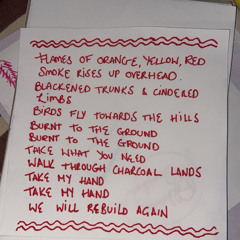 FLAMES OF ORANGE, YELLOW, RED
SMOKE RISES UP OVERHEAD.
BLACKENED TRUNKS & CINDERED
LIMBS
BIRDS FLY TOWARDS THE HILLS
BURNT TO THE GROUND
BURNT TO THE GROUND
TAKE WHAT YOU NEED
WALK THROUGH CHARCOAL LANDS
TAKE MY HAND
TAKE MY HAND
WE WILL REBUILD AGAIN